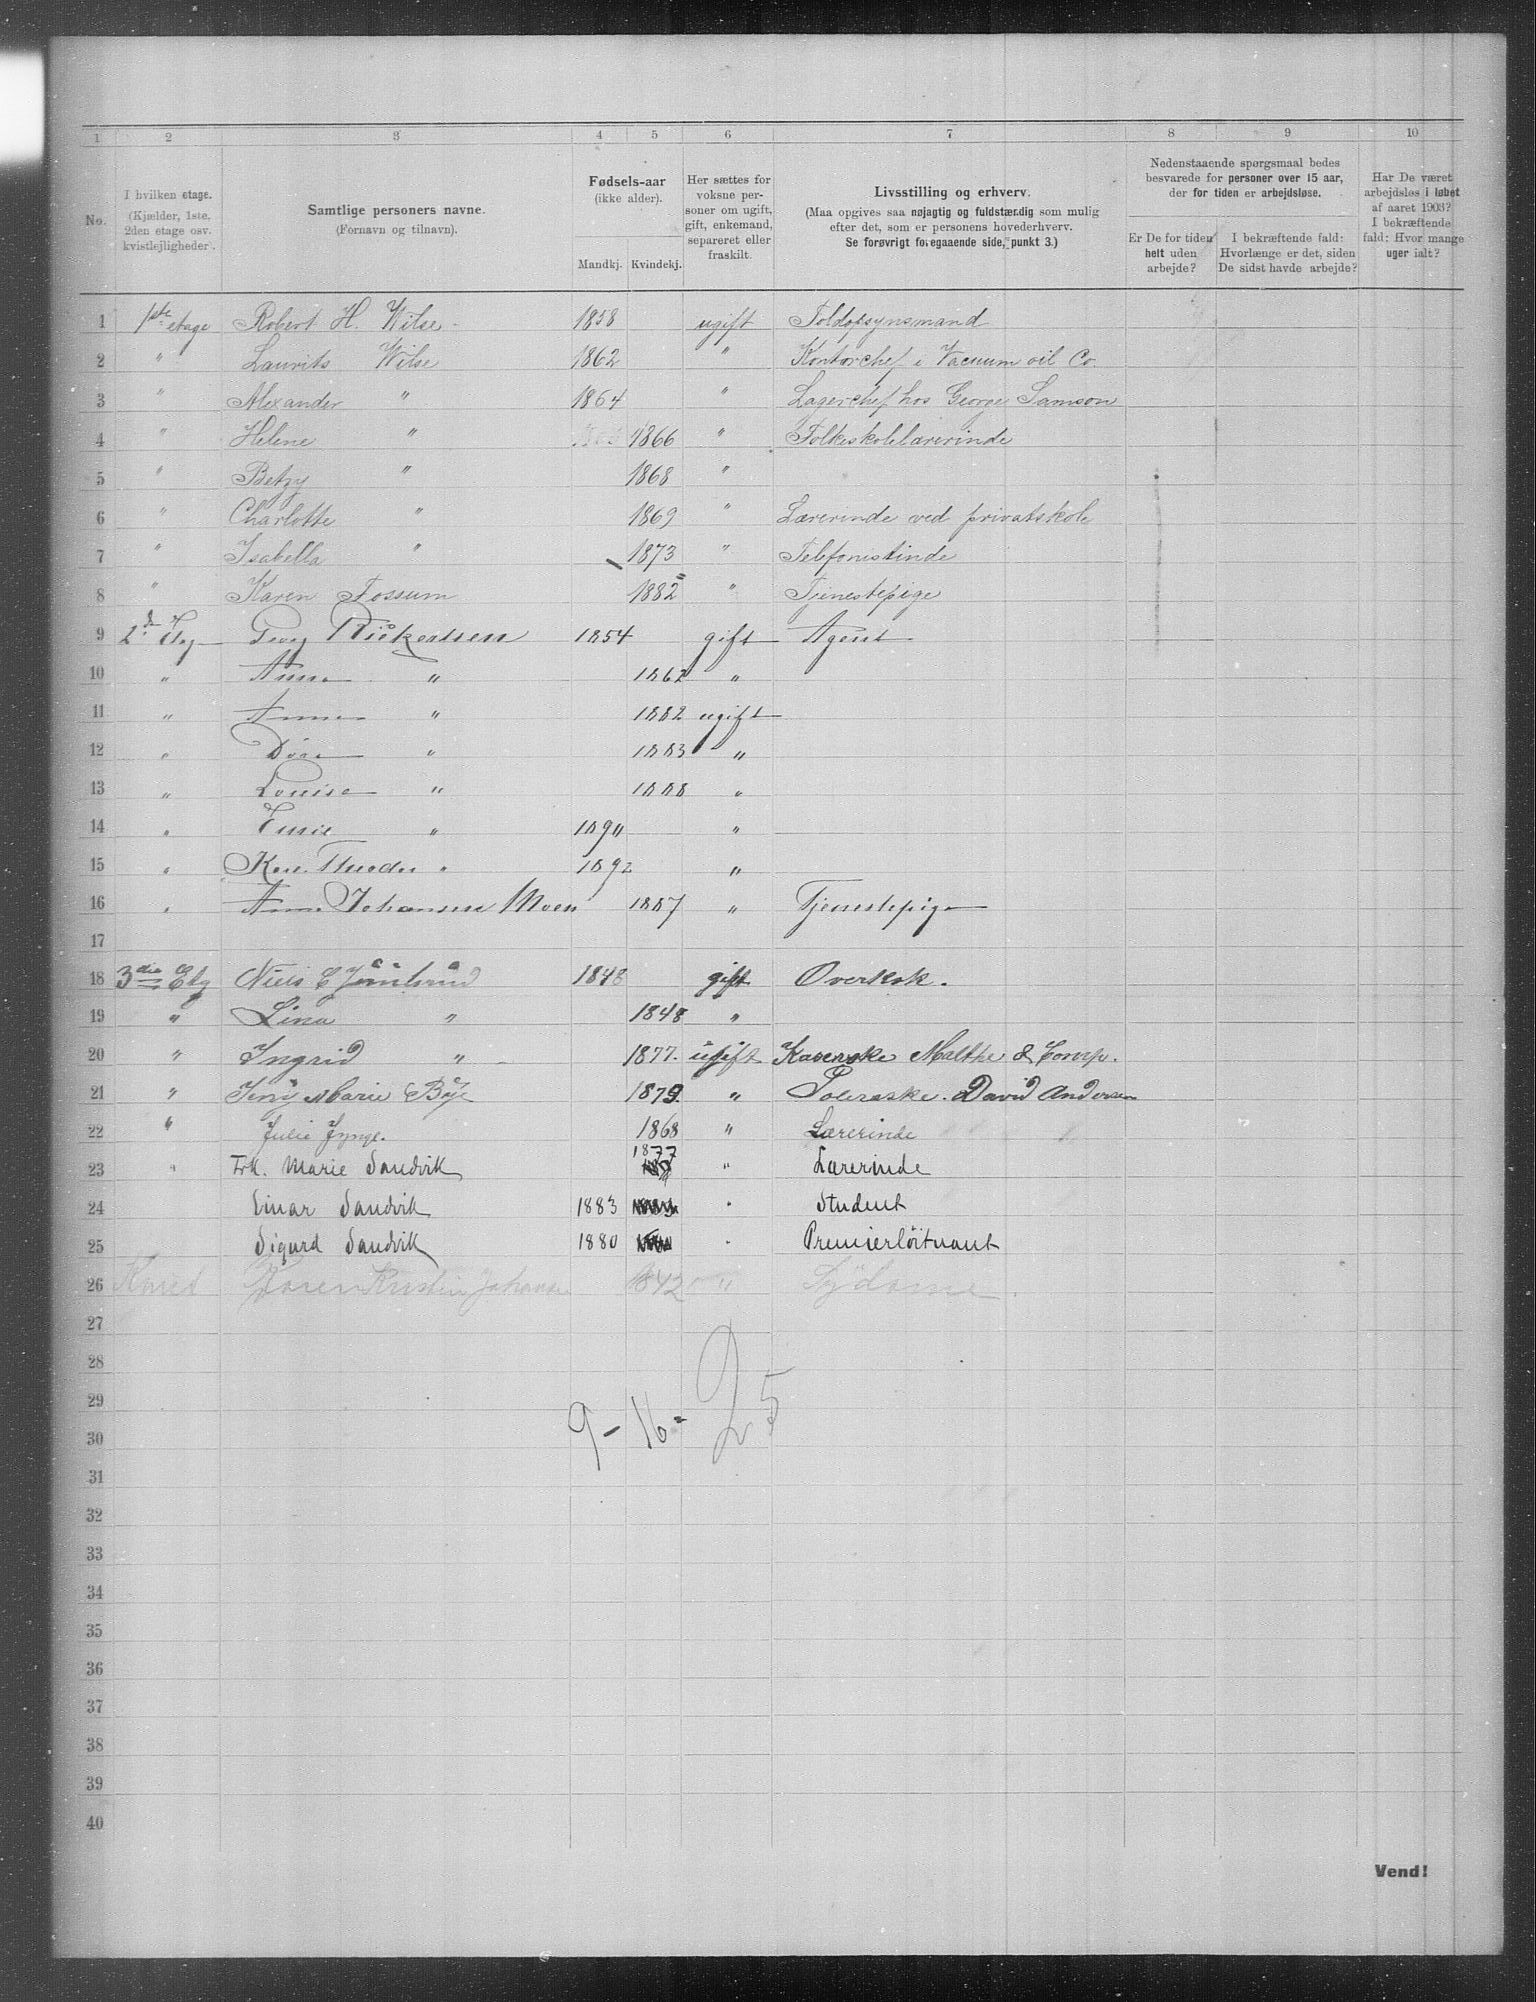 1 2 3 4 5 6 7 8 9 10
No.
I hvilken etage.
(Kjælder, 1ste,
2den etage osv.
kvistlejligheder).
Samtlige personers navne.
(Fornavn og tilnavn).
Fødsels-aar
(ikke alder).
Mandkj. Kvindekj.
Her sættes for
voksne per-
soner om ugift,
gift, enkemand,
separeret eller
fraskilt.
Livsstilling og erhverv.
(Maa opgives saa nøjagtig og fuldstærdig som mulig
efter det, som er personens hovederhverv.
Se forøvrigt foregaaende side, punkt 3.)
Nedenstaaende spørgsmaal bedes
besvarede for personer over 15 aar,
der for tiden er arbejdsløse.
Er De for tiden
helt uden
arbejde?
I bekræftende fald:
Hvorlænge er det, siden
De sidst havde arbejde?
Har De været
arbejdsløs i løbet
af aaret 1903?
I bekræftende
fald: Hvor mange
uger ialt?
1 1ste etage Robert H. Wilse 1858 ugift Toldopsynsmand
2 " Laurits Wilse 1862 " Kontorchef i Vacuum oil Co.
3 " Alexander " 1864 " Lagerchef hos George Samson
4 " Helene " 1866 " Folkeskolelærerinde
5 " Betzy " 1868 "
6 " Charlotte " 1869 " Lærerinde ved privatskole
7 " Isabella " 1873 " Telefonistinde
8 " Karen Fossum 1882 " Tjenestepige
9 2d. Etg Georg 1854 gift Agent
10 " Anna " 1862 "
11 " Anna " 1882 ugift
12 " " 1883 "
13 " Louise " 1888 "
14 " " 1890 "
15 " " 1892 "
16 " Anna Johansen Moen 1887 " Tjenestepige
17
18 3die Etg Niels C 1848 gift Overkok.
19 " Lina " 1848 "
20 " Ingrid " 1877. ugift Malthe & Comp.
21 " Jeny Marie Bye 1879. " Polerske. David Andersen
22 " Julie 1868 " Lærerinde
23 " Frk. Marie Sandvik 1877 " Lærerinde
24 Einar Sandvik 1883 " Student
25 Sigurd Sandvik 1880 " Premierløitnant
26 Karen Kristin Johanse 1842 " Sydame
27
28
29
9 - 16 = 25
30
31
32
33
34
35
36
37
38
39
40
Vend!